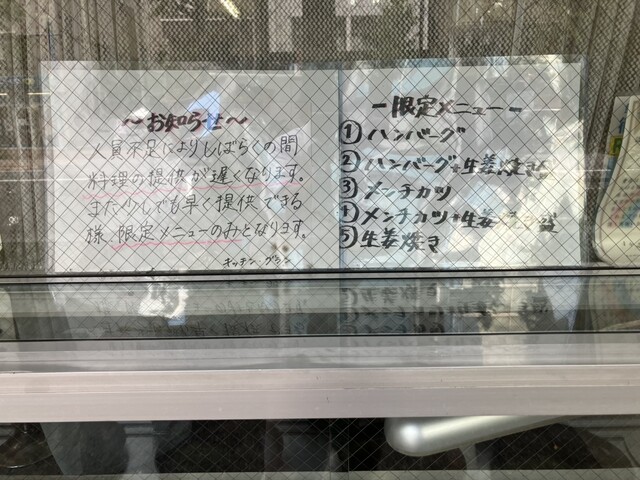 ～お知らせ～
人員不足によりしばらくの間
料理の提供が遅くなります。
また少しでも早く提供できる
様、限定メニューのみとなります。
キッチン グリーン
ー限定メニューー
①ハンバーグ
②ハンバーグ+生姜焼き
③メンチカツ
④メンチカツ+生姜
⑤生姜焼き